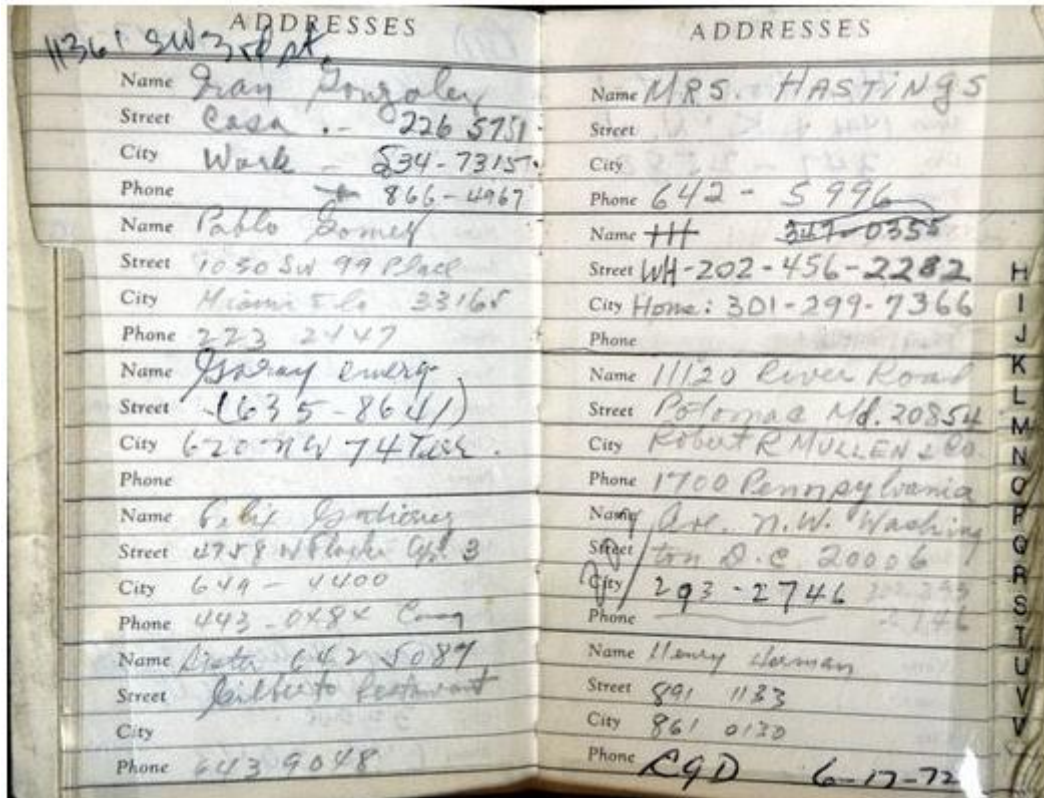 ADDRESSES
11361 SW 3rd St.
Name Fran Gonzalez
Street Casa .- 226 5751
City Work - 534-7315
Phone 866-4967
Name Pablo Gomez
Street 1030 SW 99 Place
City Miami Fla 33165
Phone 223 2447
Name Garay emerg
Street (635-8641)
City 620 NW 74
Phone
Name Felix Gutierrez
Street 3
City 649-4400
Phone 443-0484
Name 642 5089
Street Gilberto Restaurant
City
Phone 643 9048
ADDRESSES
Name MRS. HASTINGS
Street
City
Phone 642-5996
Name HH 347-0355
Street WH-202-456-2282
City Home: 301-299-7366
Phone
Name 11120 River Road
Street Potomac Md. 20854
City Robert R MULLEN & Co.
Phone 1700 Pennsylvania
Name Ave. N.W. Washing
Street ton D.C. 20006
City 293-2746
Phone
Name Henry
Street 891 1133
City 861 0130
Phone 6-17-72
H
I
J
K
L
M
N
O
P
Q
R
S
T
U
V